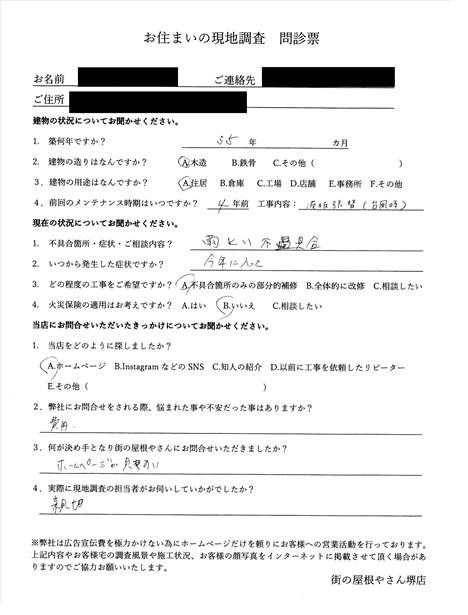 お住まいの現地調査　問診票
お名前　ご連絡先
ご住所
建物の状況についてお聞かせください。
1. 築何年ですか？　35 年　カ月
2. 建物の造りはなんですか？　A.木造　B.鉄骨　C.その他（　）
3. 建物の用途はなんですか？　A.住居　B.倉庫　C.工場　D.店舗　E.事務所　F.その他
4. 前回のメンテナンス時期はいつですか？　4 年前　工事内容：　（台風時）
現在の状況についてお聞かせください。
1. 不具合箇所・症状・ご相談内容？　雨とい 不具合
2. いつから発生した症状ですか？　今年に入って
3. どの程度の工事をご希望ですか？　A.不具合箇所のみの部分的補修　B.全体的に改修　C.相談したい
4. 火災保険の適用はお考えですか？　A.はい　B.いいえ　C.相談したい
当店にお問合せいただいたきっかけについてお聞かせください。
1. 当店をどのように探しましたか？
A.ホームページ　B.InstagramなどのSNS　C.知人の紹介　D.以前に工事を依頼したリピーター
E.その他（　）
2. 弊社にお問合せをされる際、悩まれた事や不安だった事はありますか？
費用.
3. 何が決め手となり街の屋根やさんにお問合せいただきましたか？
ホームページが見やすい
4. 実際に現地調査の担当者がお伺いしていかがでしたか？
親切
※弊社は広告宣伝費を極力かけない為にホームページだけを頼りにお客様への営業活動を行っております。
上記内容やお客様宅の調査風景や施工状況、お客様の顔写真をインターネットに掲載させて頂く場合が
ありますのでご協力お願いいたします。
街の屋根やさん堺店